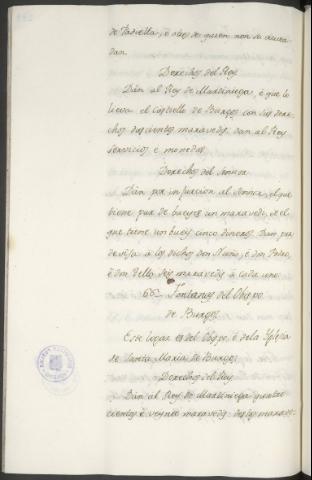 de Padiella, é otros de quien non se acuer-
dan.
Derechos del Rey
Dán al Rey de Martiniega, é que lo
lieva el Castiello de Burgos con sus dere-
chos doscientos maravedis, dan al Rey
servicios é monedas.
Derechos del Sennor
Dán por infurcion al Sennor, el que
tiene par de bueyes un maravedi, é el
que tiene un buey cinco dineros. Dan por
devisa á los dichos don Nuño, é don Pedro,
é don Tello seis maravedis á cada uno.
66 Fontanas del Obispo
de Burgos
Este logar es del Obispo, é dela Iglesia
de Santa Maria de Burgos.
Derechos del Rey
Dán al Rey de Martiniega quatro
cientos é veynte maravedis: destos marave-